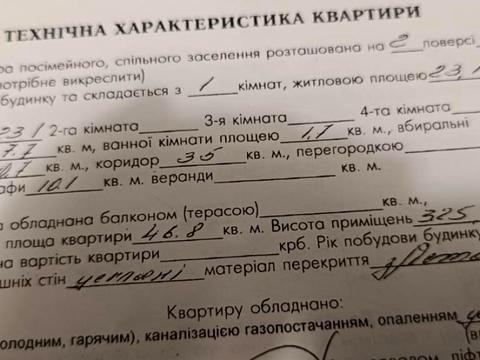 ТЕХНІЧНА ХАРАКТЕРИСТИКА КВАРТИРИ
ра посімейного, спільного заселення розташована на 2 поверсі
потрібне викреслити)
будинку та складається з 1 кімнат, житловою площею 23,1
23,1 2-га кімната 3-я кімната 4-та кімната
7.7 кв. м, ванної кімнати площею 1.7 кв. м., вбиральні
0.7 кв. м., коридор 3.5 кв. м., перегородкою
афи 10.1 кв. м. веранди кв. м.
а обладнана балконом (терасою) кв. м.,
площа квартири 46.8 кв. м. Висота приміщень 325
на вартість квартири крб. Рік побудови будинку
шніх стін цегляні матеріал перекриття
Квартиру обладнано:
олодним, гарячим), каналізацією газопостачанням, опаленням